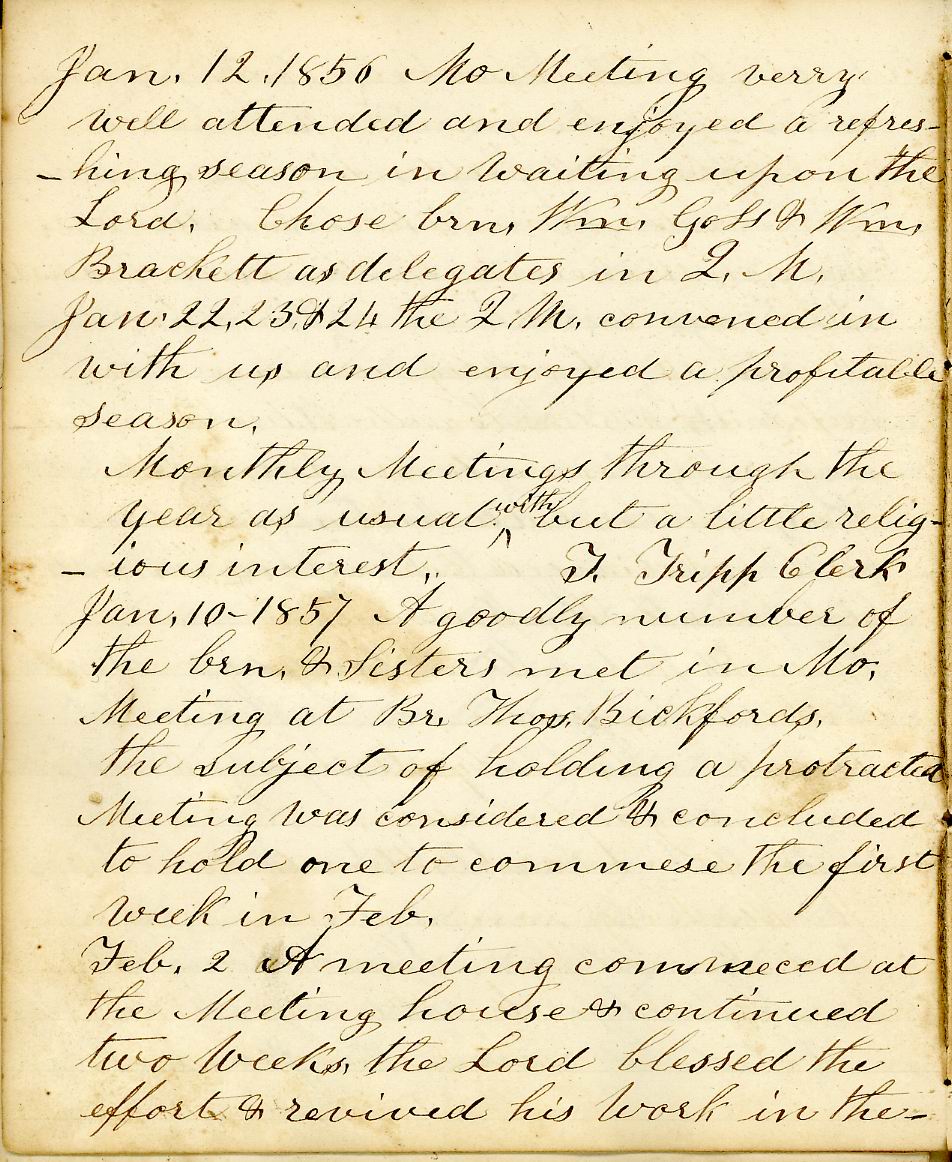 Jan. 12. 1856 Mo Meeting verry
well attended and enjoyed a refres-
-hing season in waiting upon the
Lord. Chose brn. Wm. Goss & Wm.
Brackett as delegates in Q. M.
Jan. 22, 23 & 24 the Q M. convened in
with us and enjoyed a profitable
season.
Monthly Meetings through the
year as usual, with but a little relig-
-ious interest. T. Tripp Clerk
Jan. 10 - 1857 A goodly number of
the brn. & Sisters met in Mo.
Meeting at Br. Thos. Bickfords.
the subject of holding a protracted
Meeting was considered & concluded
to hold one to commese the first
week in Feb.
Feb. 2 A meeting commneced at
the Meeting house & continued
two weeks, the Lord blessed the
effort & revived his work in the-